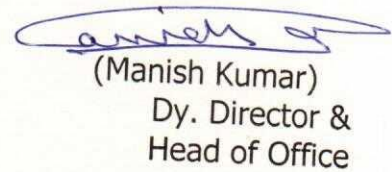 (Manish Kumar)
Dy. Director &
Head of Office